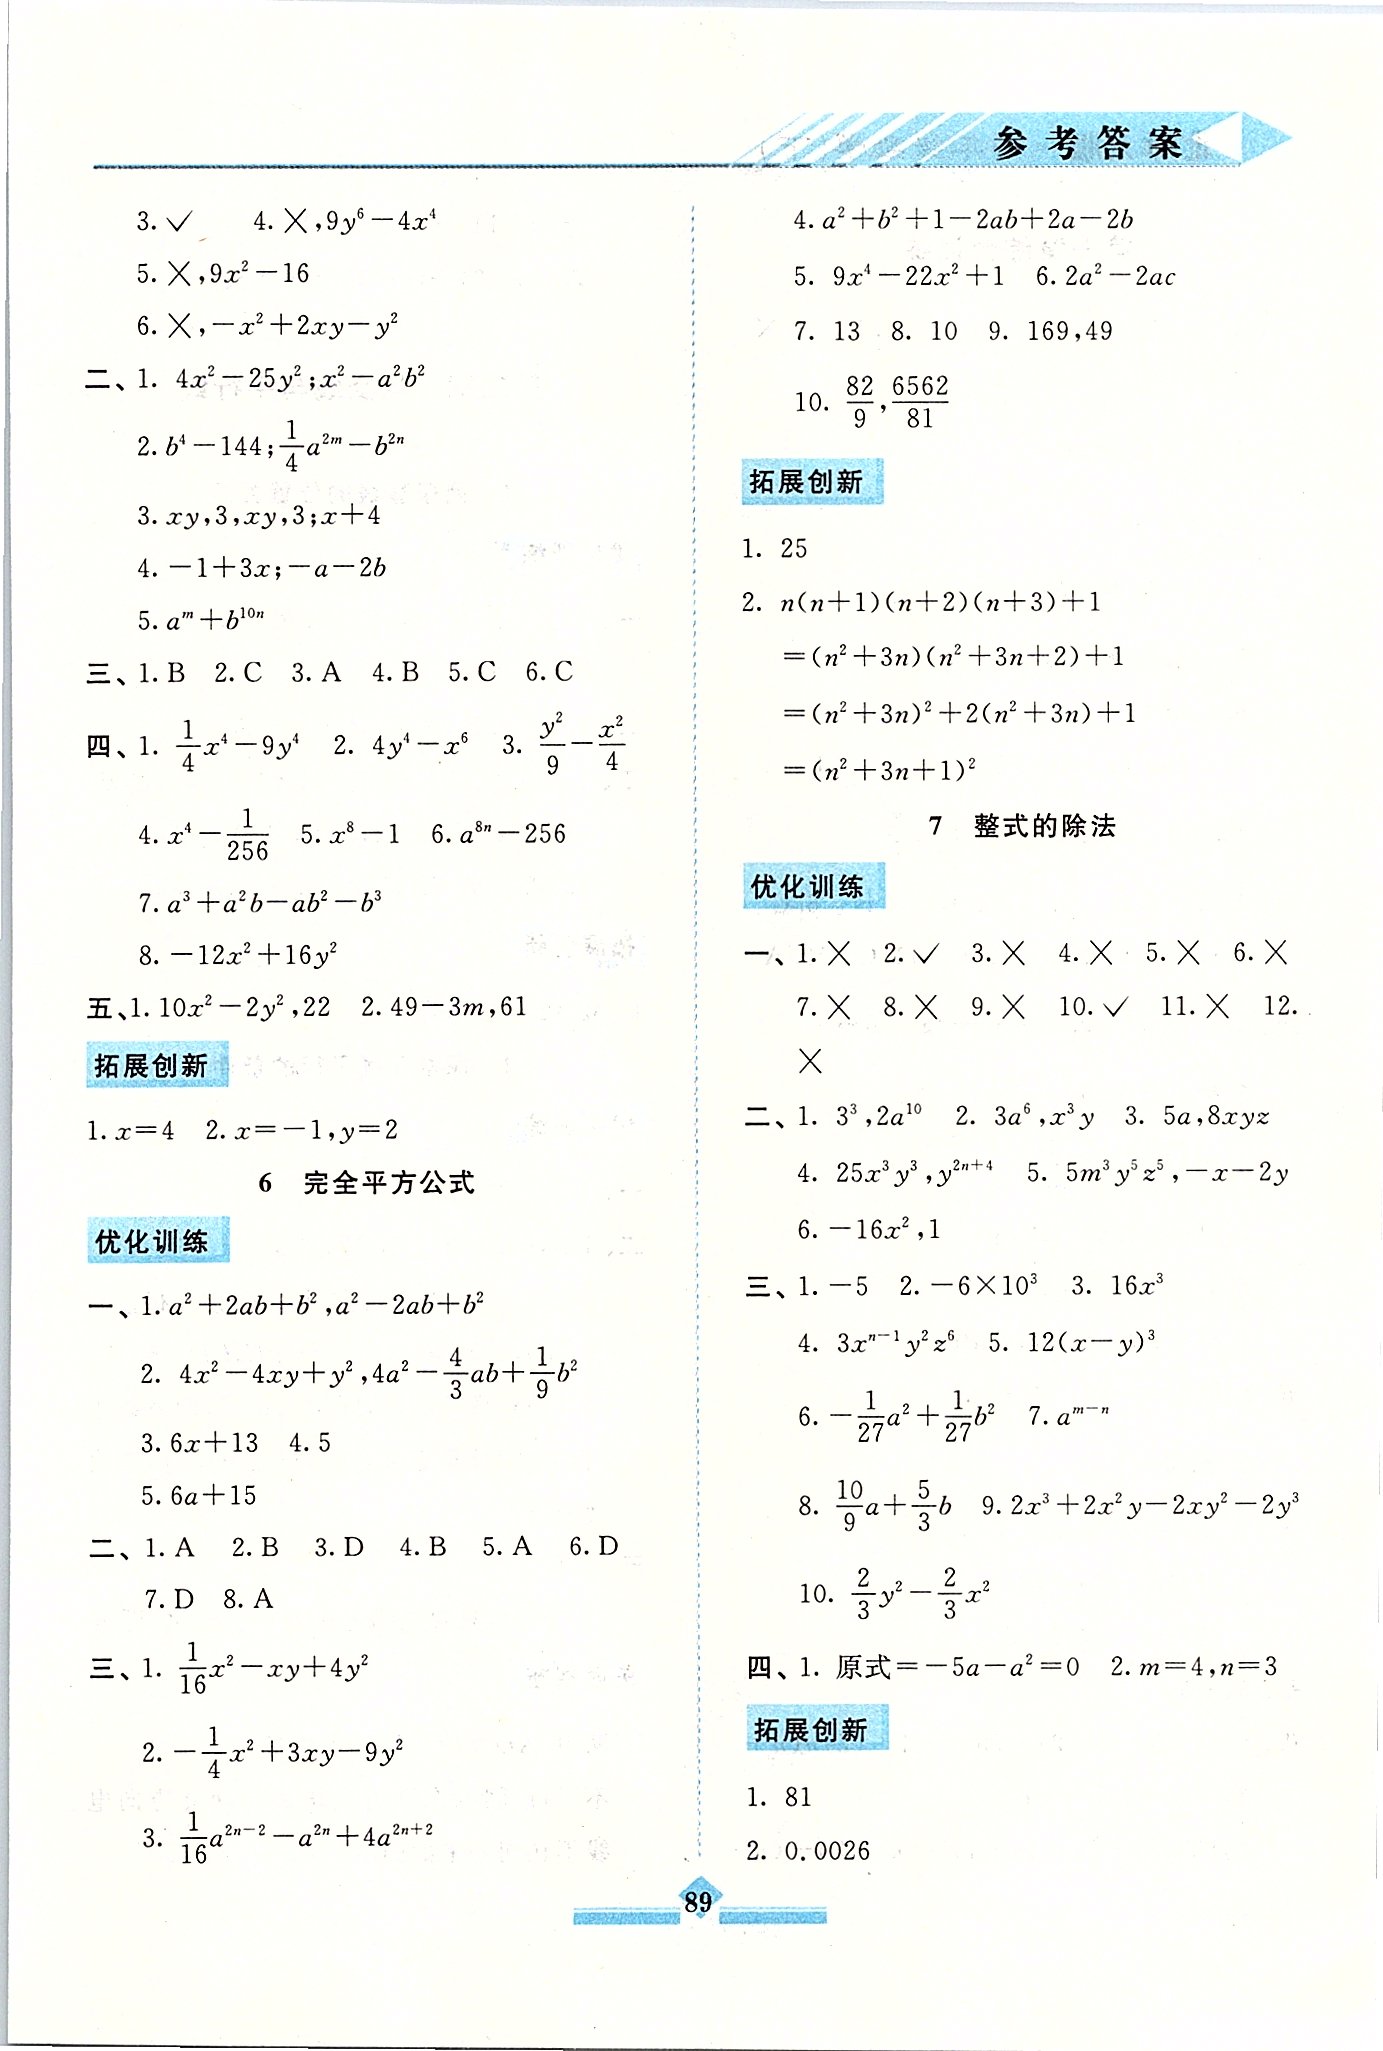 参考答案
3.✓ 4.╳,9y⁶－4x⁴
5.╳,9x²－16
6.╳,－x²＋2xy－y²
二、1. 4x²－25y²;x²－a²b²
2.b⁴－144;1/4a²ᵐ－b²ⁿ
3.xy,3,xy,3;x＋4
4.－1＋3x;－a－2b
5.aᵐ＋b¹⁰ⁿ
三、1.B 2.C 3.A 4.B 5.C 6.C
四、1. 1/4x⁴－9y⁴ 2. 4y⁴－x⁶ 3. y²/9－x²/4
4.x⁴－1/256 5.x⁸－1 6.a⁸ⁿ－256
7.a³＋a²b－ab²－b³
8.－12x²＋16y²
五、1.10x²－2y²,22 2.49－3m,61
拓展创新
1.x＝4 2.x＝－1,y＝2
6 完全平方公式
优化训练
一、1.a²＋2ab＋b²,a²－2ab＋b²
2. 4x²－4xy＋y²,4a²－4/3ab＋1/9b²
3.6x＋13 4.5
5.6a＋15
二、1.A 2.B 3.D 4.B 5.A 6.D
7.D 8.A
三、1. 1/16x²－xy＋4y²
2.－1/4x²＋3xy－9y²
3. 1/16a²ⁿ⁻²－a²ⁿ＋4a²ⁿ⁺²
4.a²＋b²＋1－2ab＋2a－2b
5. 9x⁴－22x²＋1 6.2a²－2ac
7. 13 8. 10 9. 169,49
10. 82/9,6562/81
拓展创新
1. 25
2. n(n＋1)(n＋2)(n＋3)＋1
＝(n²＋3n)(n²＋3n＋2)＋1
＝(n²＋3n)²＋2(n²＋3n)＋1
＝(n²＋3n＋1)²
7 整式的除法
优化训练
一、1.╳ 2.✓ 3.╳ 4.╳ 5.╳ 6.╳
7.╳ 8.╳ 9.╳ 10.✓ 11.╳ 12.
╳
二、1. 3³,2a¹⁰ 2. 3a⁶,x³y 3. 5a,8xyz
4. 25x³y³,y²ⁿ⁺⁴ 5. 5m³y⁵z⁵,－x－2y
6.－16x²,1
三、1.－5 2.－6×10³ 3. 16x³
4. 3xⁿ⁻¹y²z⁶ 5. 12(x－y)³
6.－1/27a²＋1/27b² 7.aᵐ⁻ⁿ
8. 10/9a＋5/3b 9.2x³＋2x²y－2xy²－2y³
10. 2/3y²－2/3x²
四、1. 原式＝－5a－a²＝0 2.m＝4,n＝3
拓展创新
1. 81
2. 0.0026
89